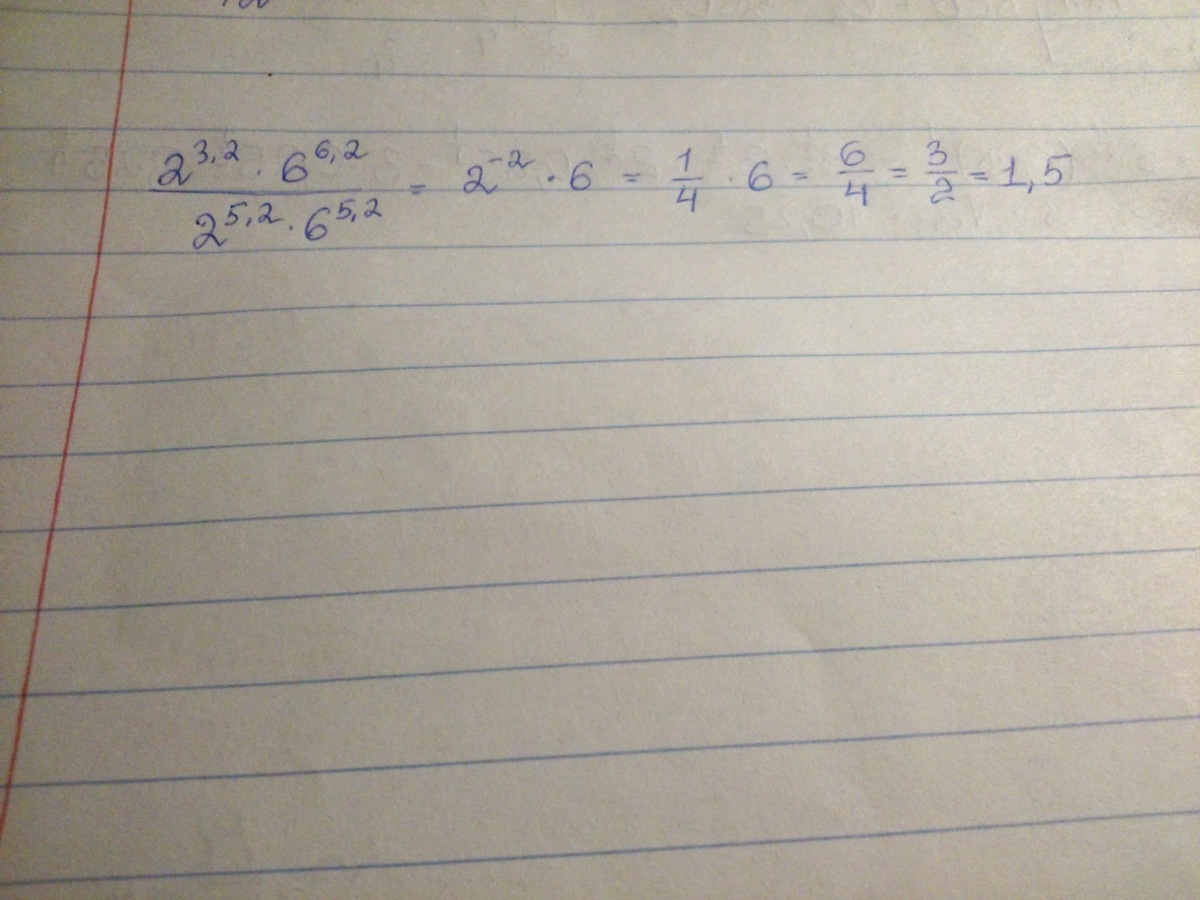 2^3,2 · 6^6,2 / 2^5,2 · 6^5,2 = 2^-2 · 6 = 1/4 · 6 = 6/4 = 3/2 = 1,5